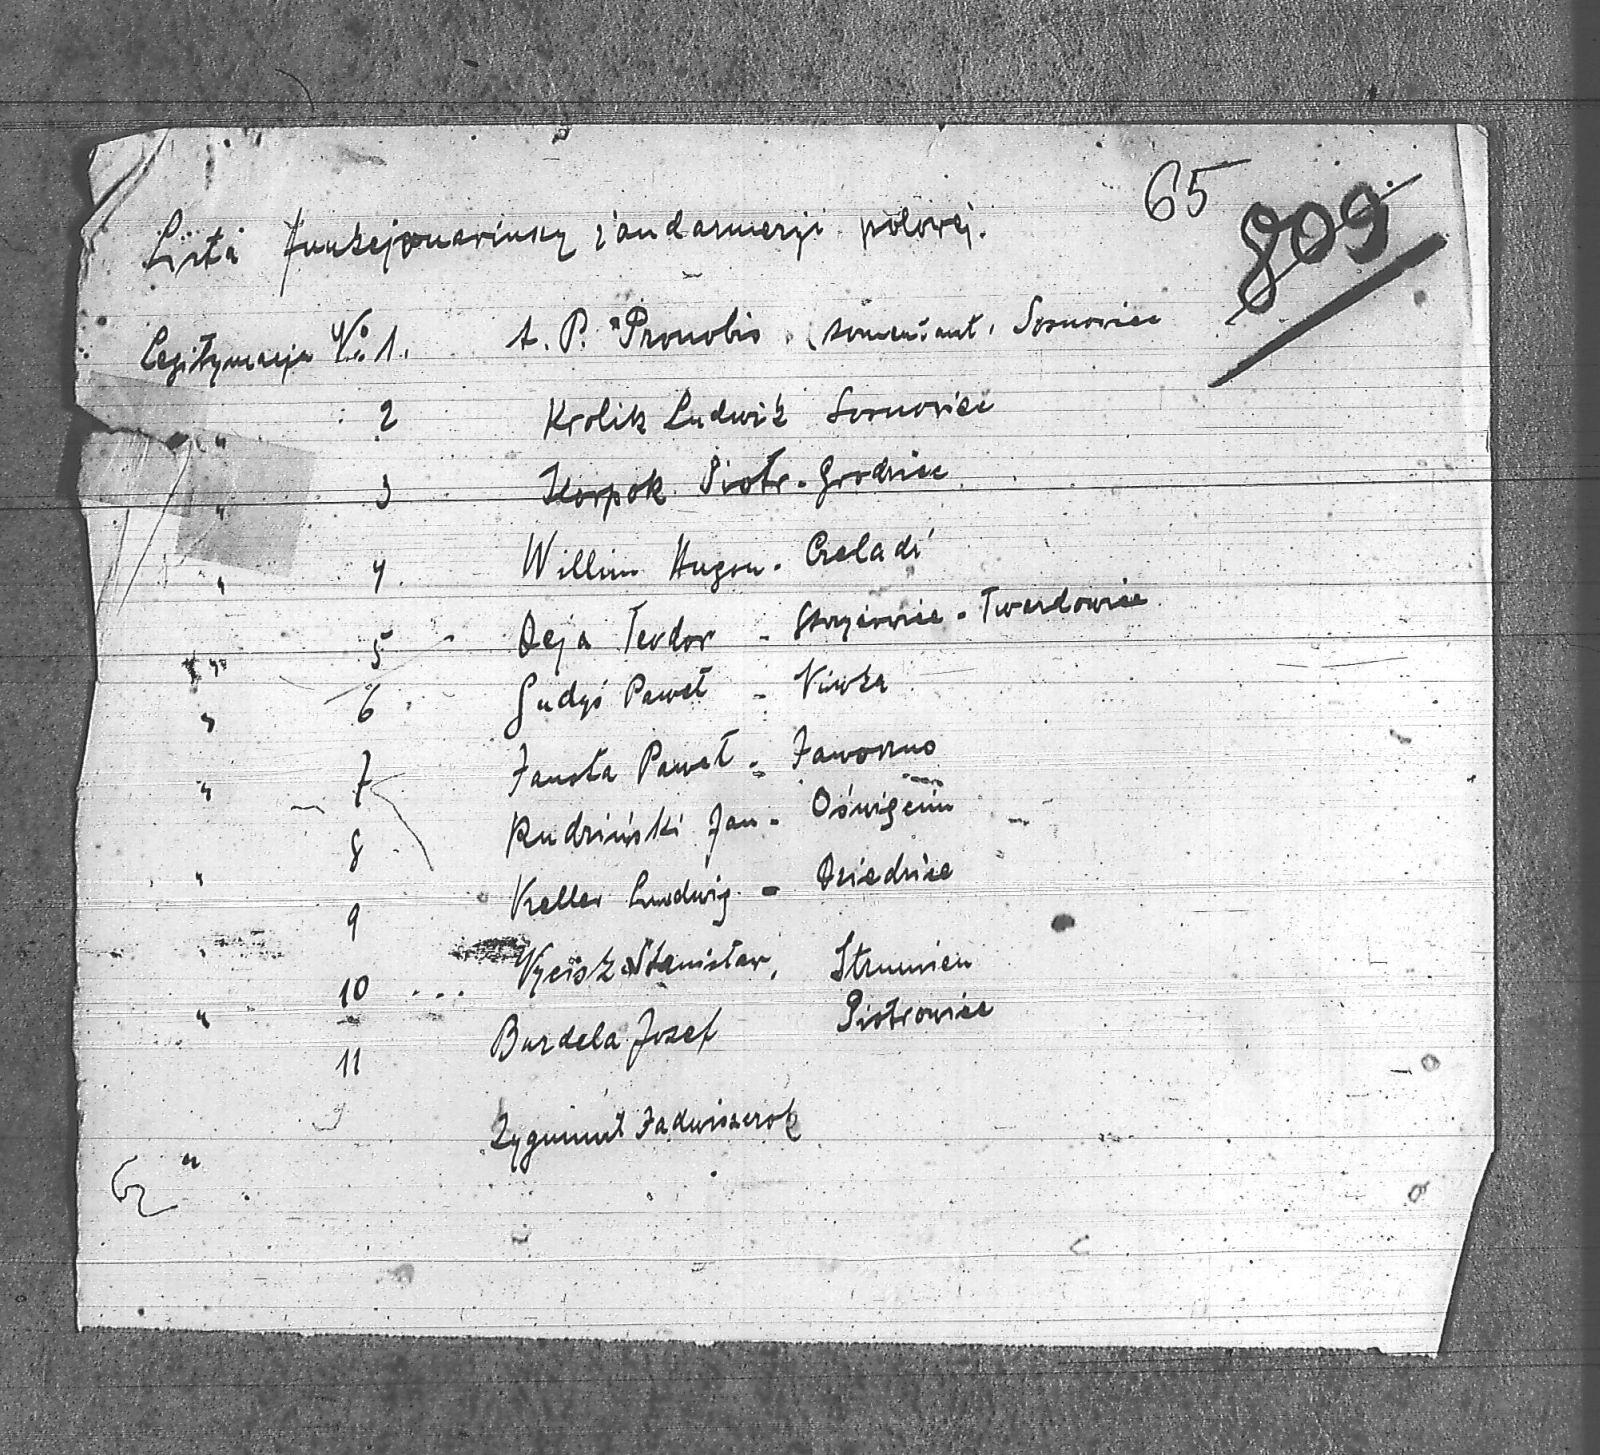 65
809
Lista funkcjonariuszy żandarmerji polowej.
Legitymacja No 1. A. P. Pronobis. (komendant, Sosnowiec
" 2 Krolik Ludwik Sosnowiec
" 3 Piotr - Grodziec
" 4. Willim Hugon. Czeladź
" 5 Deja Teodor - Strzyżowice - Twardowice
" 6. Gudyś Paweł - Niwka
" 7 Paweł - Jaworzno
" 8. Rudziński Jan - Oświęcim
" 9 Keller Ludwig - Dziedzice
" 10 ... Wycisk Stanisław, Strumien
11 Burdela Jozef Piotrowice
" Zygmunt